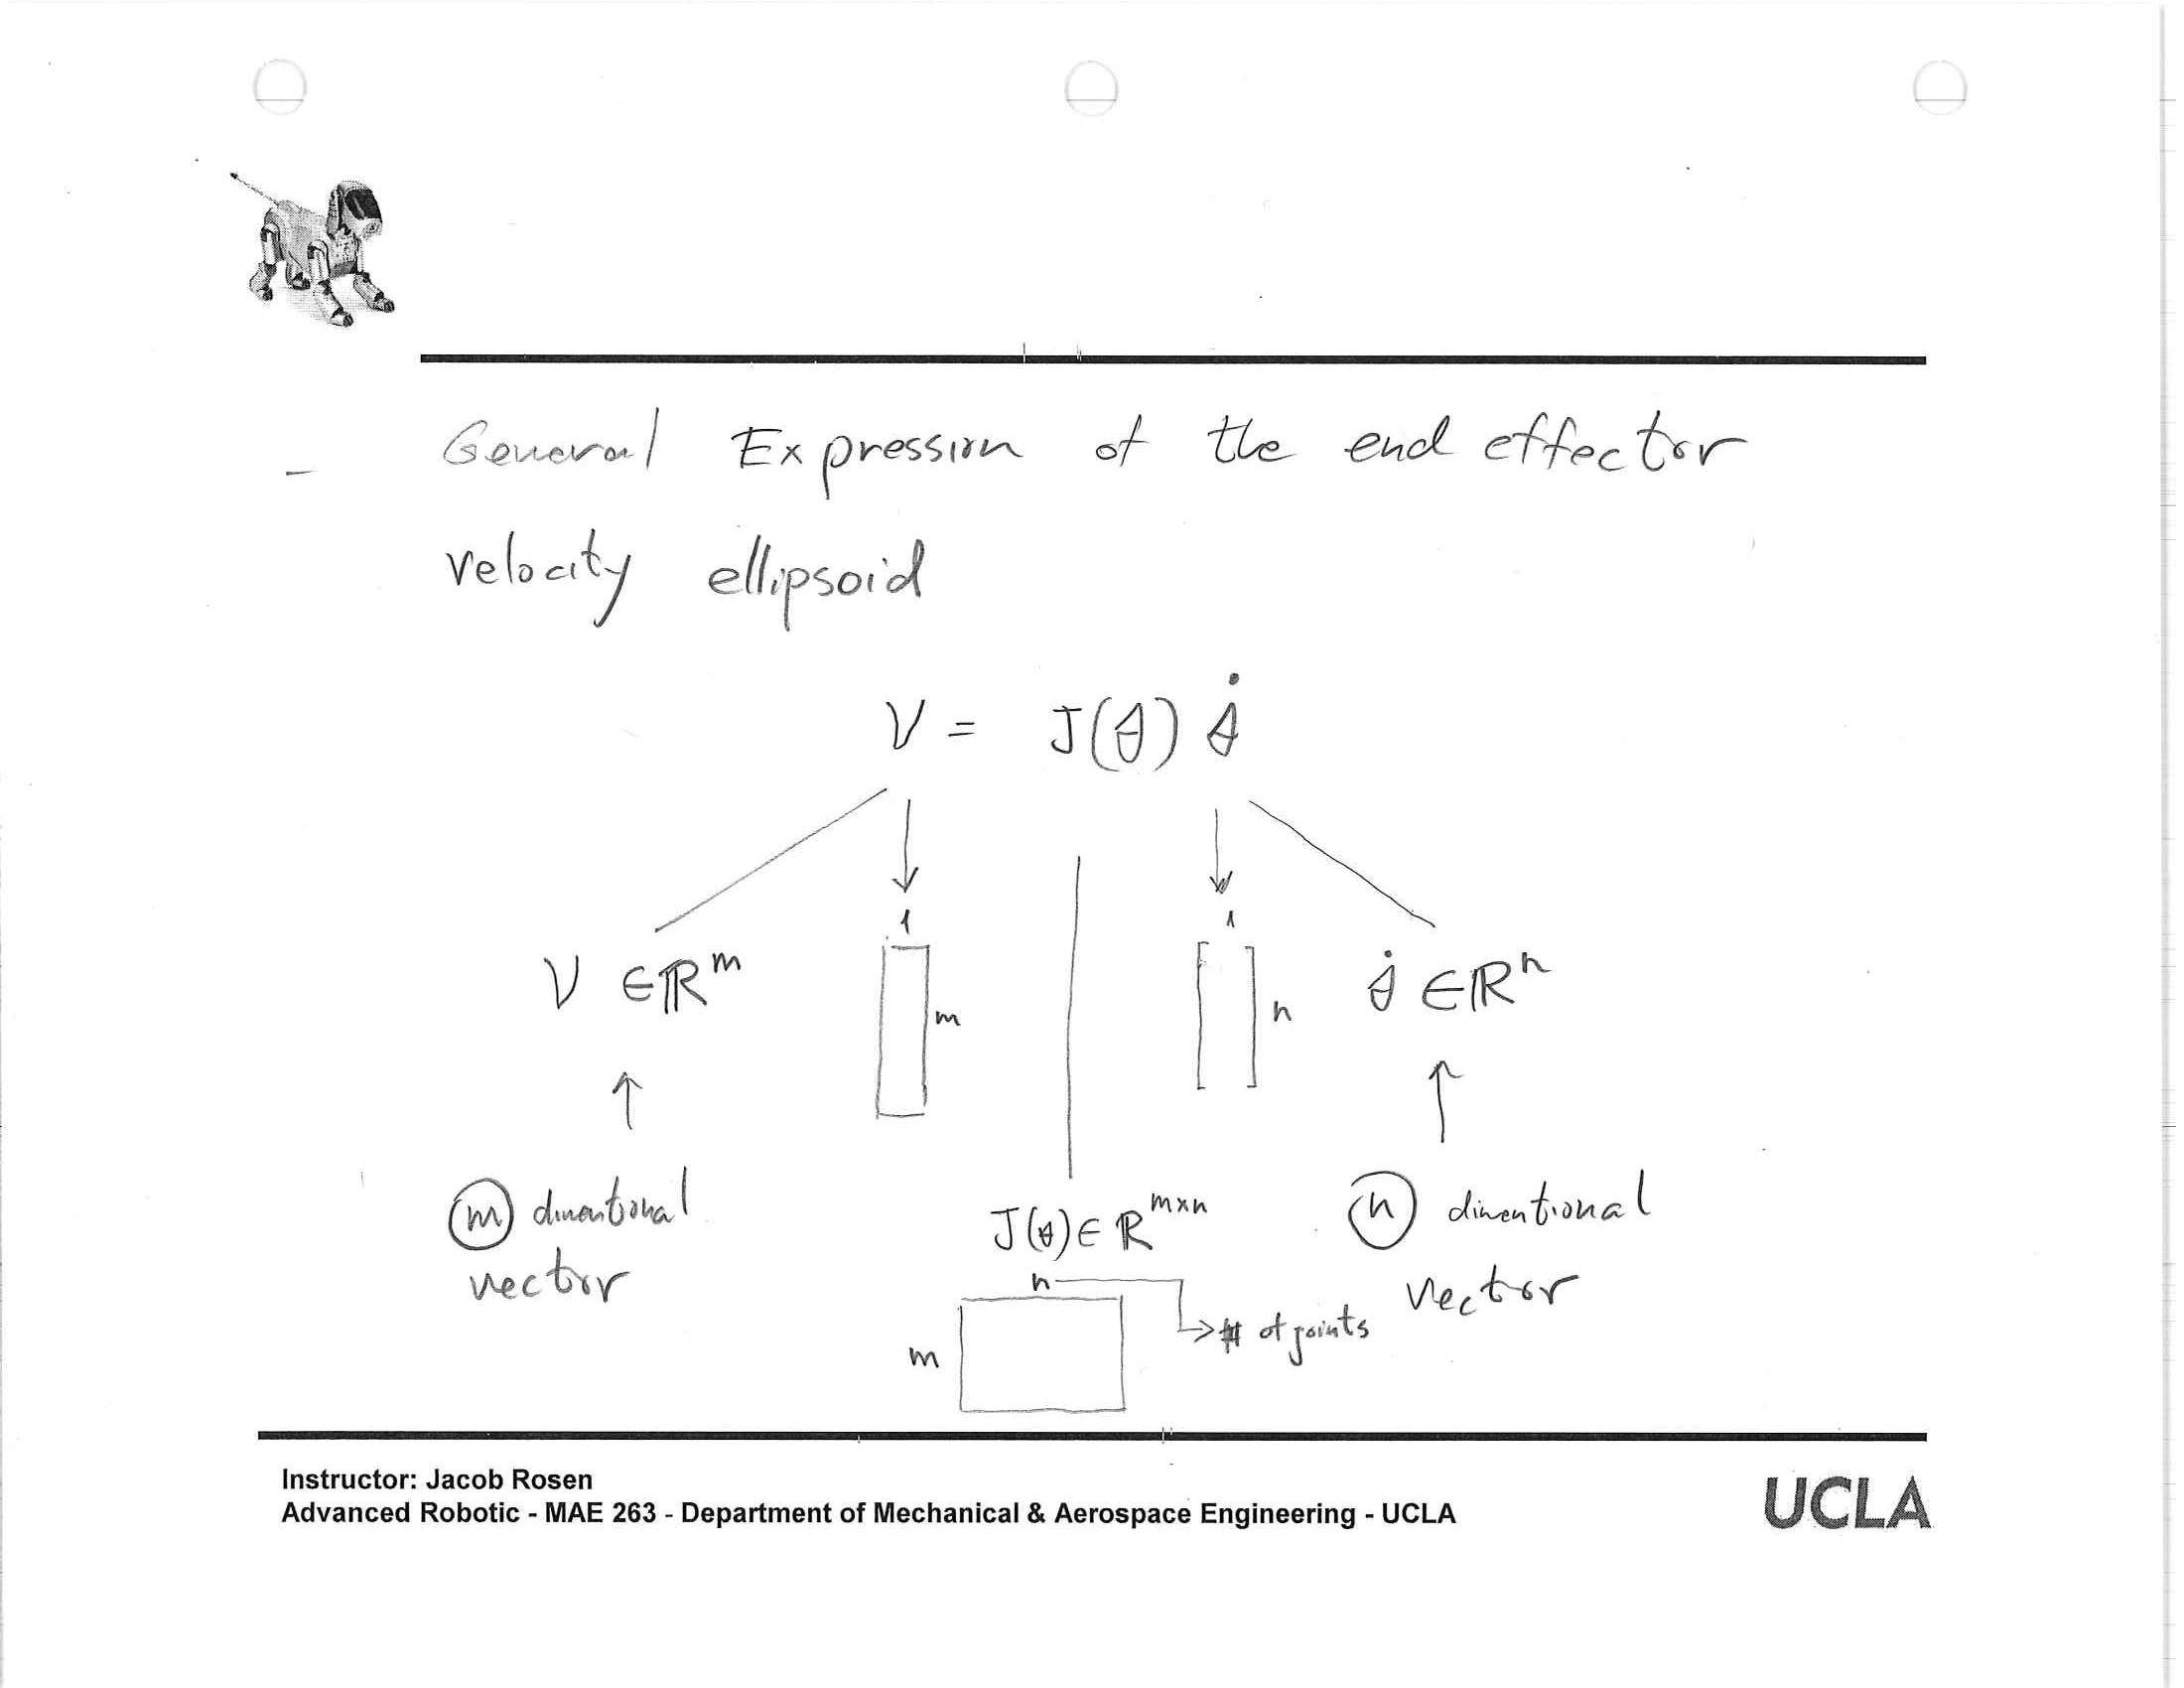 - General Expression of the end effector
velocity ellipsoid
V = J(θ) θ̇
1
1
V ∈ ℝ^m
m
n
θ̇ ∈ ℝ^n
m dimentional
vector
J(θ) ∈ ℝ^m×n
n dimentional
vector
n
# of joints
m
Instructor: Jacob Rosen
Advanced Robotic - MAE 263 - Department of Mechanical & Aerospace Engineering - UCLA
UCLA